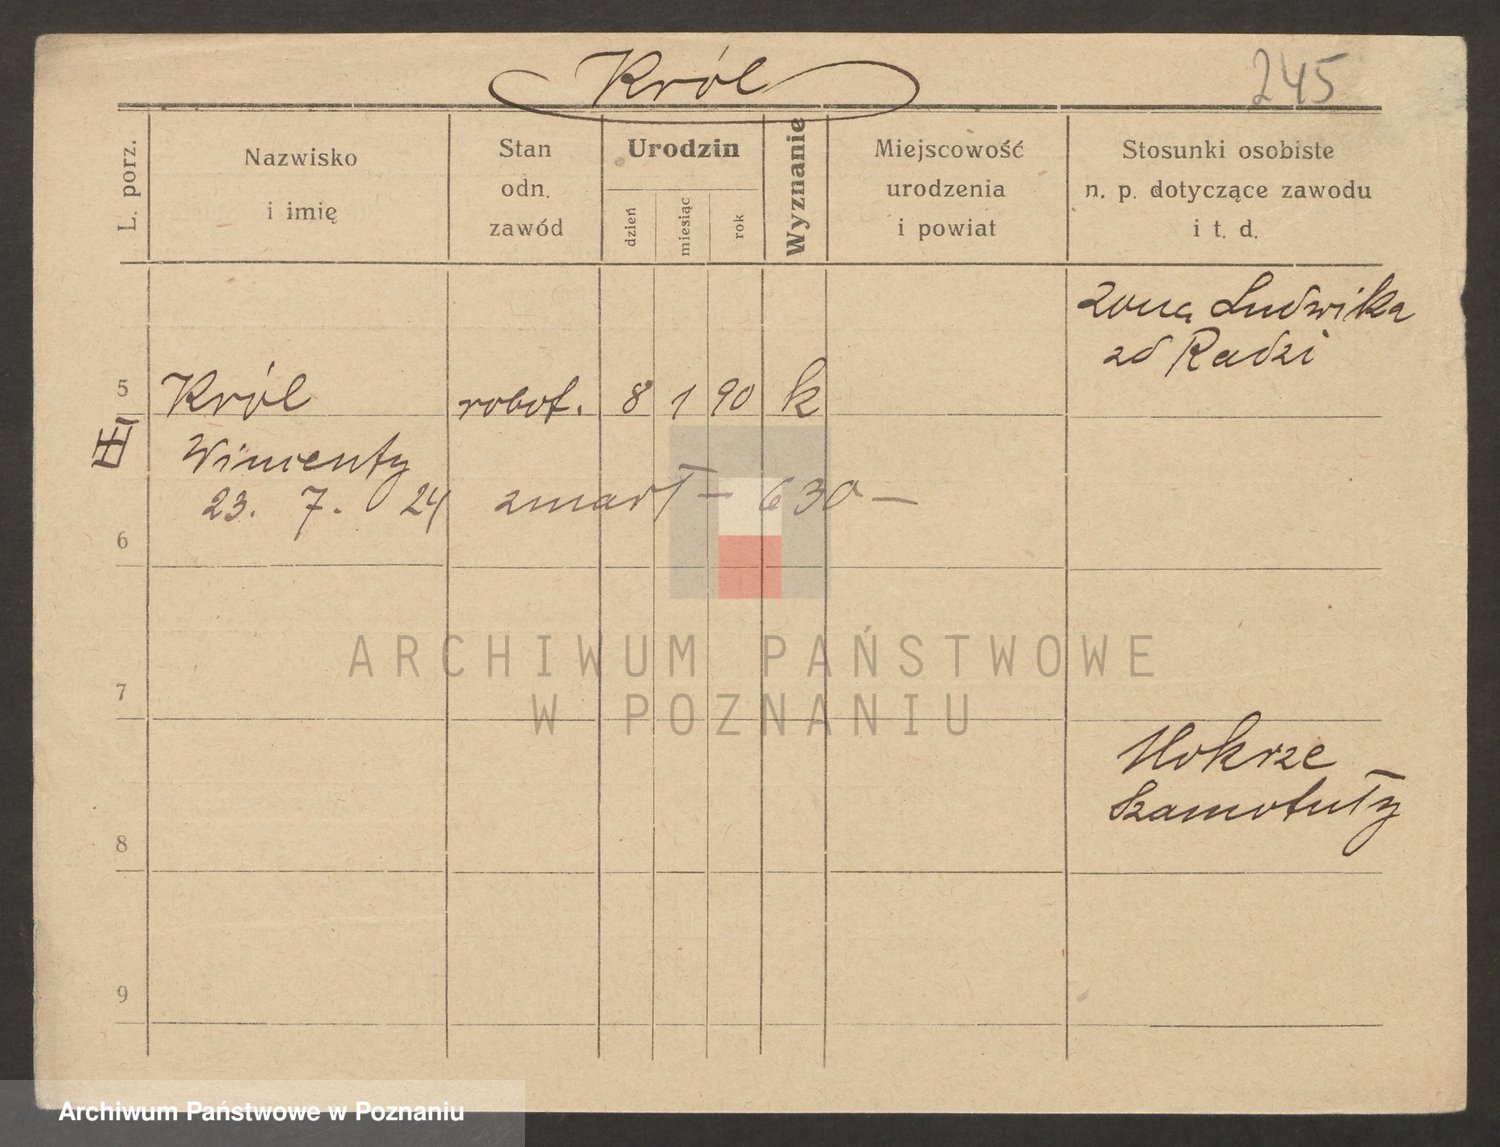 Król
245
L. porz.
Nazwisko
i imię
Stan
odn.
zawód
Urodzin
dzień
miesiąc
rok
Wyznanie
Miejscowość
urodzenia
i powiat
Stosunki osobiste
n. p. dotyczące zawodu
i t. d.
żona Ludwika
5 Król robot. 8 1 90 k
III
23. 7. 24 zmarł – 630 –
6
ARCHIWUM PAŃSTWOWE
W POZNANIU
7
Szamotuły
8
9
Archiwum Państwowe w Poznaniu